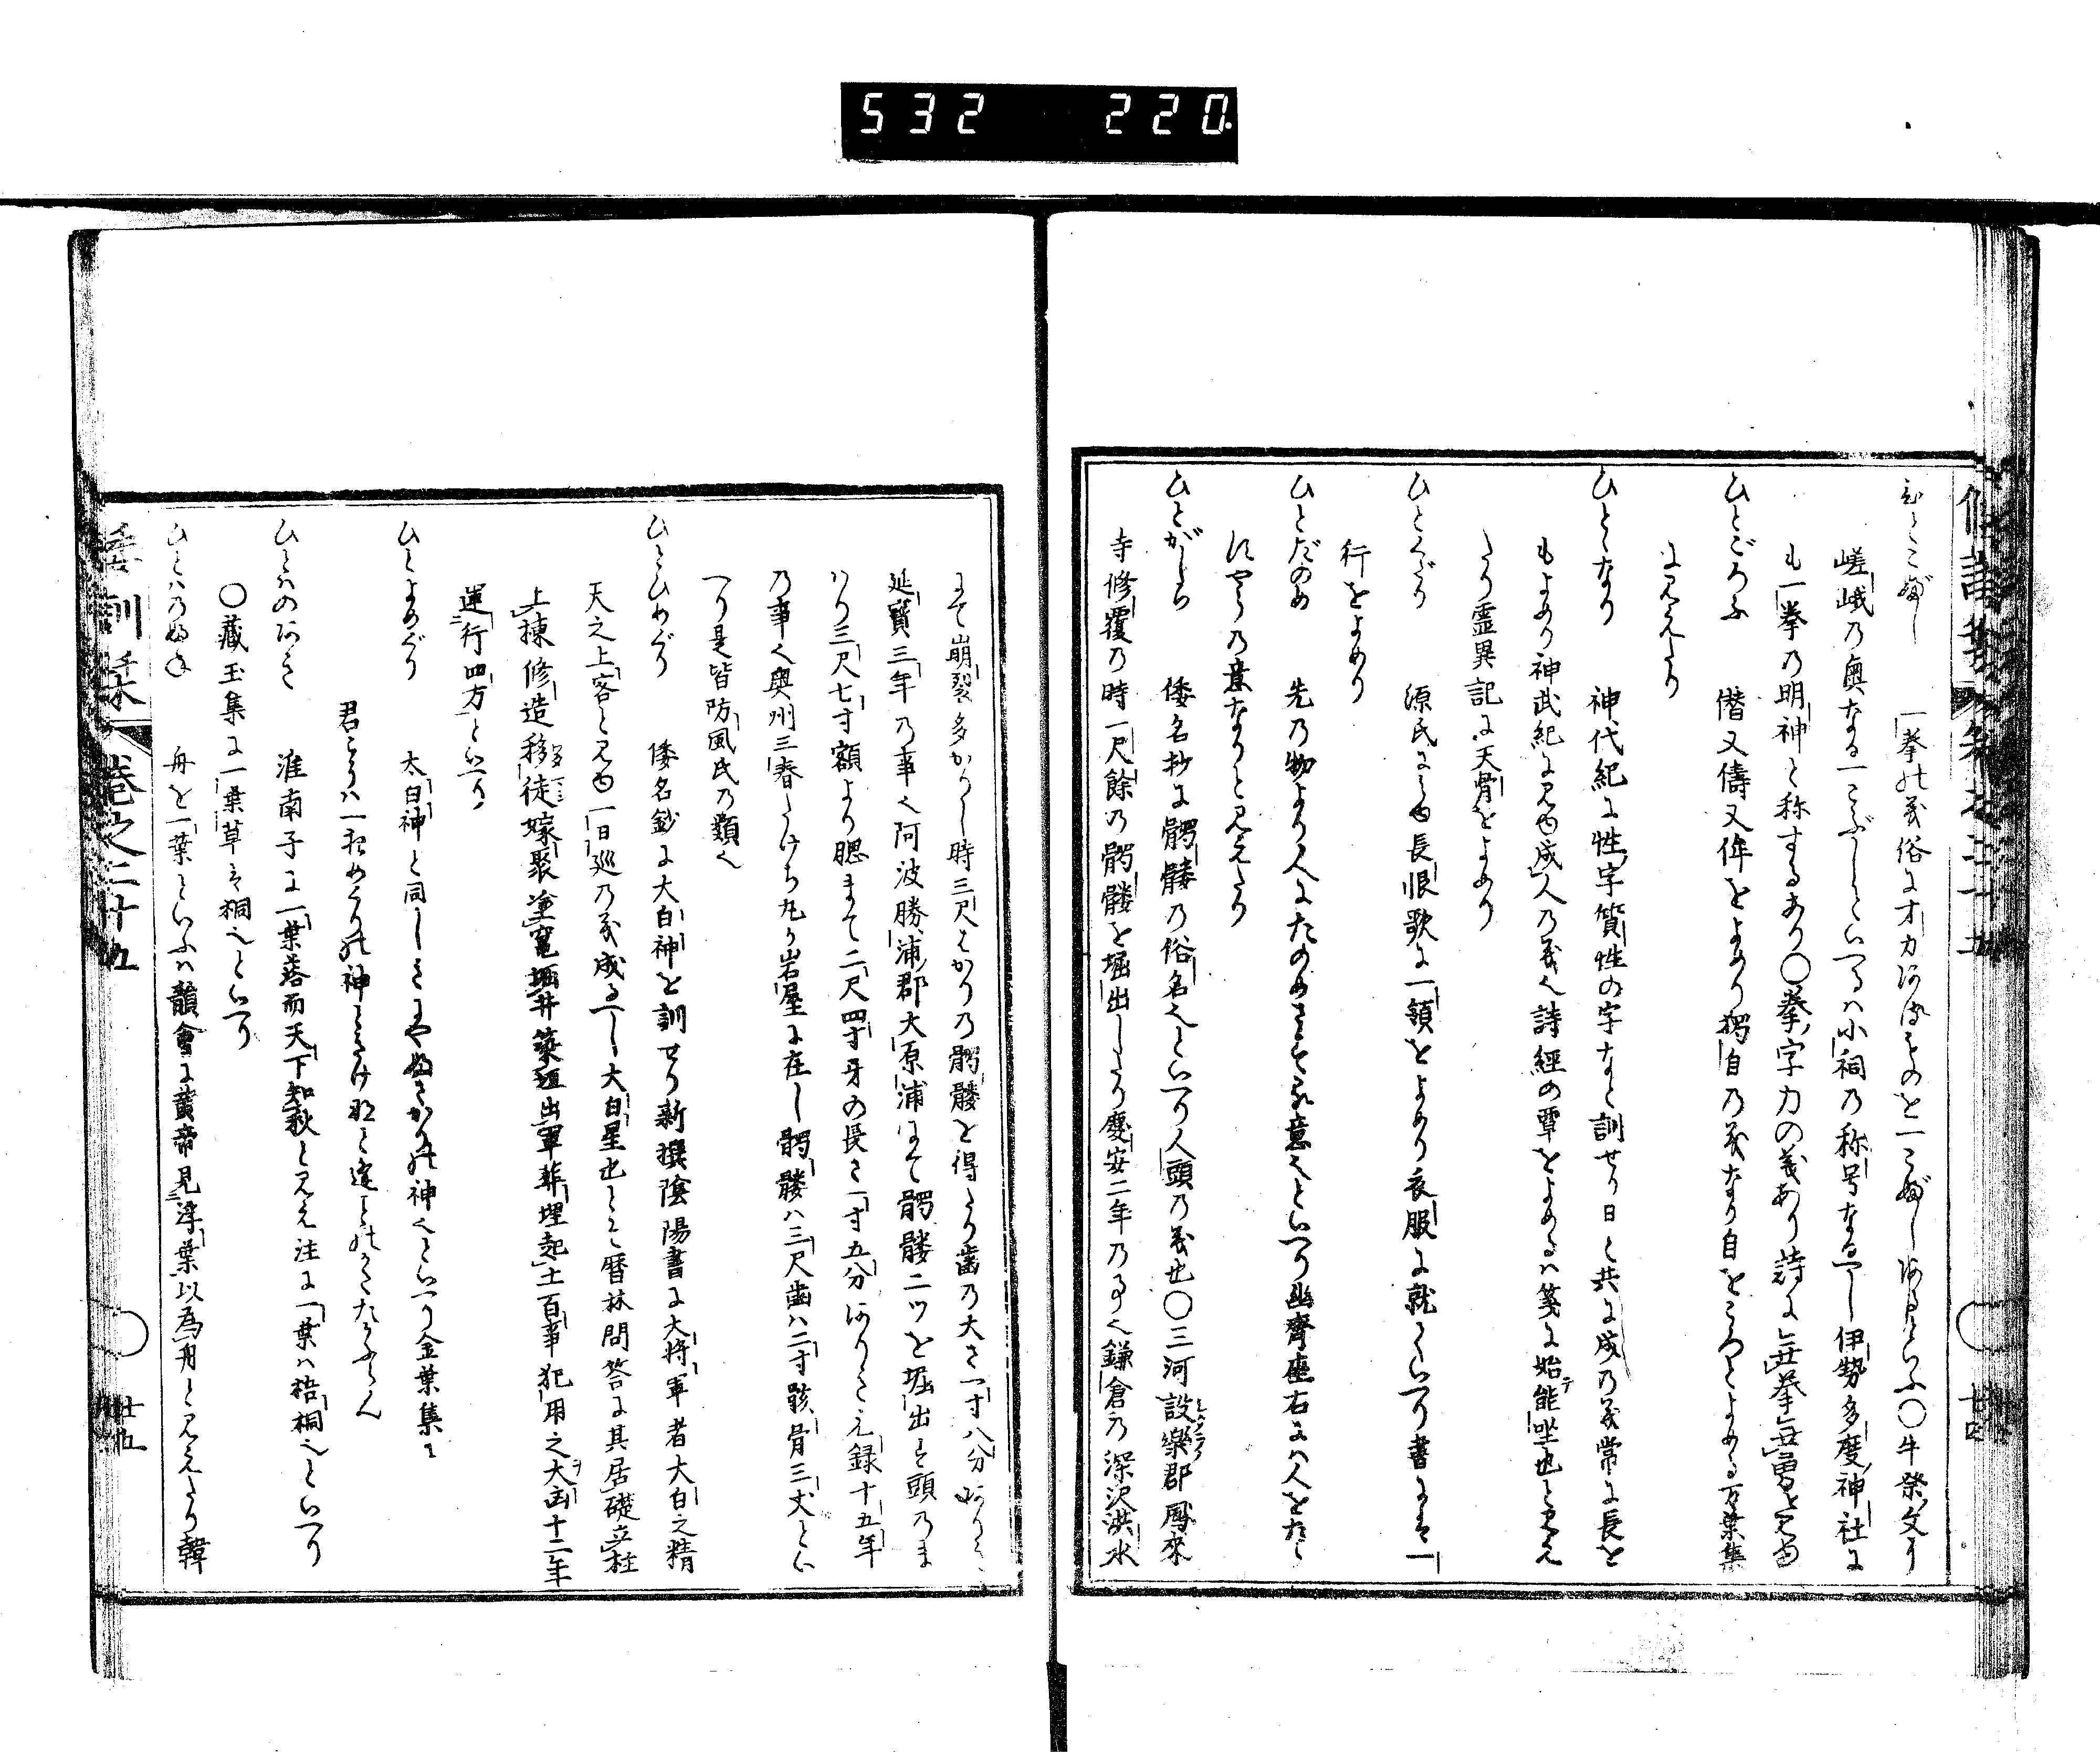 532 220
ひとこぶし 一拳の義俗に才力ある ものを一こぶしあるといふ〇牛祭文に
嵯峨の奥なる一こぶしといへるハ小祠の称号なるへし伊勢多度神社に
も一拳の明神と称するあり〇拳字力の義あり詩に無拳無勇と見ゆ
ひとごろふ 僭又儔又侔をよめり獨自の義なり自をころとよめる万葉集
に見えたり
ひとゝなり 神代紀に性字質性の字なと訓せり日と共に成の義常に長を
もよめり神武紀に見ゆ成人の義也詩經の覃をよめるハ箋に始能坐也と見え
たり霊異記に天骨をよめり
ひとくだり 源氏に 長恨歌に一領をよめり衣服に就ていへり書にも一
行をよめり
ひとだのめ 先の物より人にたのめさする意也といへり幽齋座右にハ人をたら
すやうの意なりと見えたり
ひとがしら 倭名抄に髑髏の俗名也といへり人頭の義也〇三河設樂郡鳳來
寺修覆の時一尺餘の髑髏を堀出したり慶安二年の事也鎌倉の深沢洪水
にて崩裂多かりし時三尺はかりの髑髏を得たり歯の大さ一寸八分ありし
延寳三年の事也阿波勝浦郡大原浦にて髑髏二ツを堀出せ頭のま
ハり三尺七寸額より腮まて二尺四寸牙の長さ一寸五分ありしと元録十五年
の事也奥州三春 岩屋に在し髑髏ハ三尺歯ハ二寸骸骨三丈とい
へり是皆防風氏の類也
ひとひめぐり 倭名鈔に大白神を訓せり新撰陰陽書に大将軍者大白之精
天之上客と見ゆ一日巡の義成るへし大白星也とそ暦林問答に其居礎立柱
上棟修造移徒嫁聚塗竃堀井築垣出軍葬埋起土百事犯用之大凶十二年
運行四方といへり
ひとよめぐり 太白神と同し 神也といへり金葉集に
君こそハ一夜めくりの神
ひとはのあき 淮南子に一葉落而天下知秋と見え注に一葉ハ梧桐也といへり
〇藏玉集に一葉草も桐也といへり
ひとハのふね 舟を一葉といふハ韻會に黄帝見浮葉以為舟と見えたり韓
倭訓栞 巻之二十五 廿五